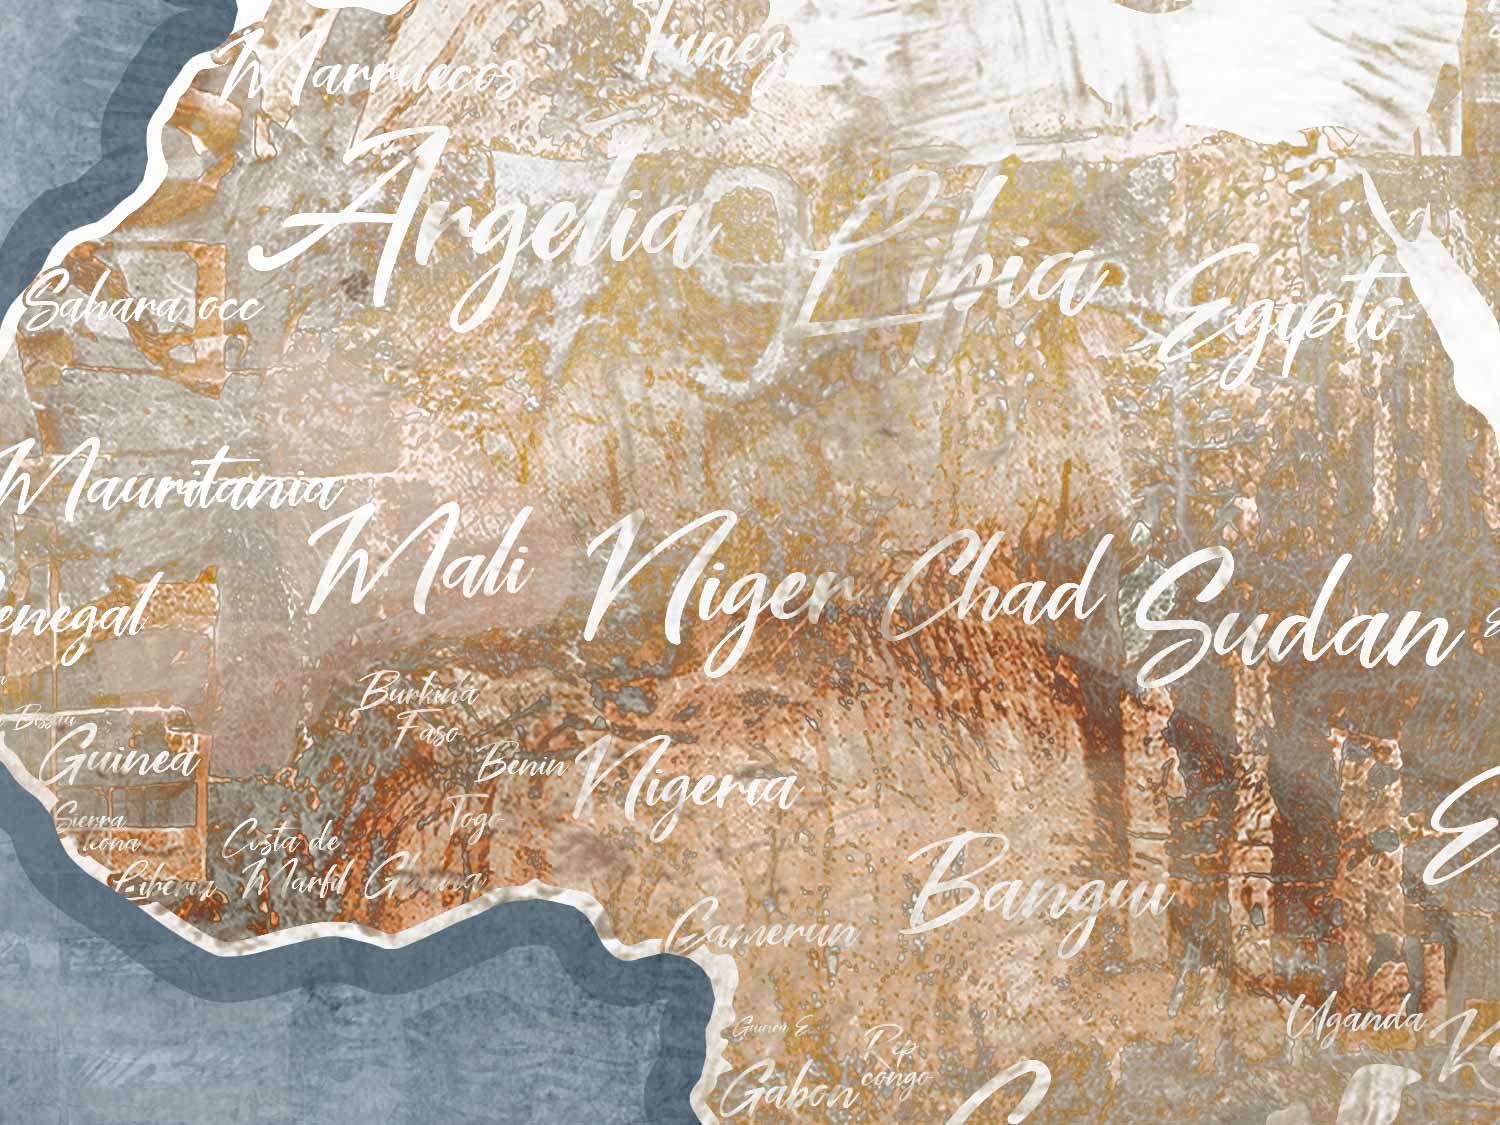 Marruecos
Tunez
Argelia
Libia
Egipto
Sahara occ
Mauritania
Mali
Niger
Chad
Sudan
enegal
Burkina
Faso
Bissau
Guinea
Benin
Nigeria
Togo
Sierra
Costa de
Marfil
Liberia
Bangui
Camerun
Uganda
Guinea E.
Rep
congo
Gabon